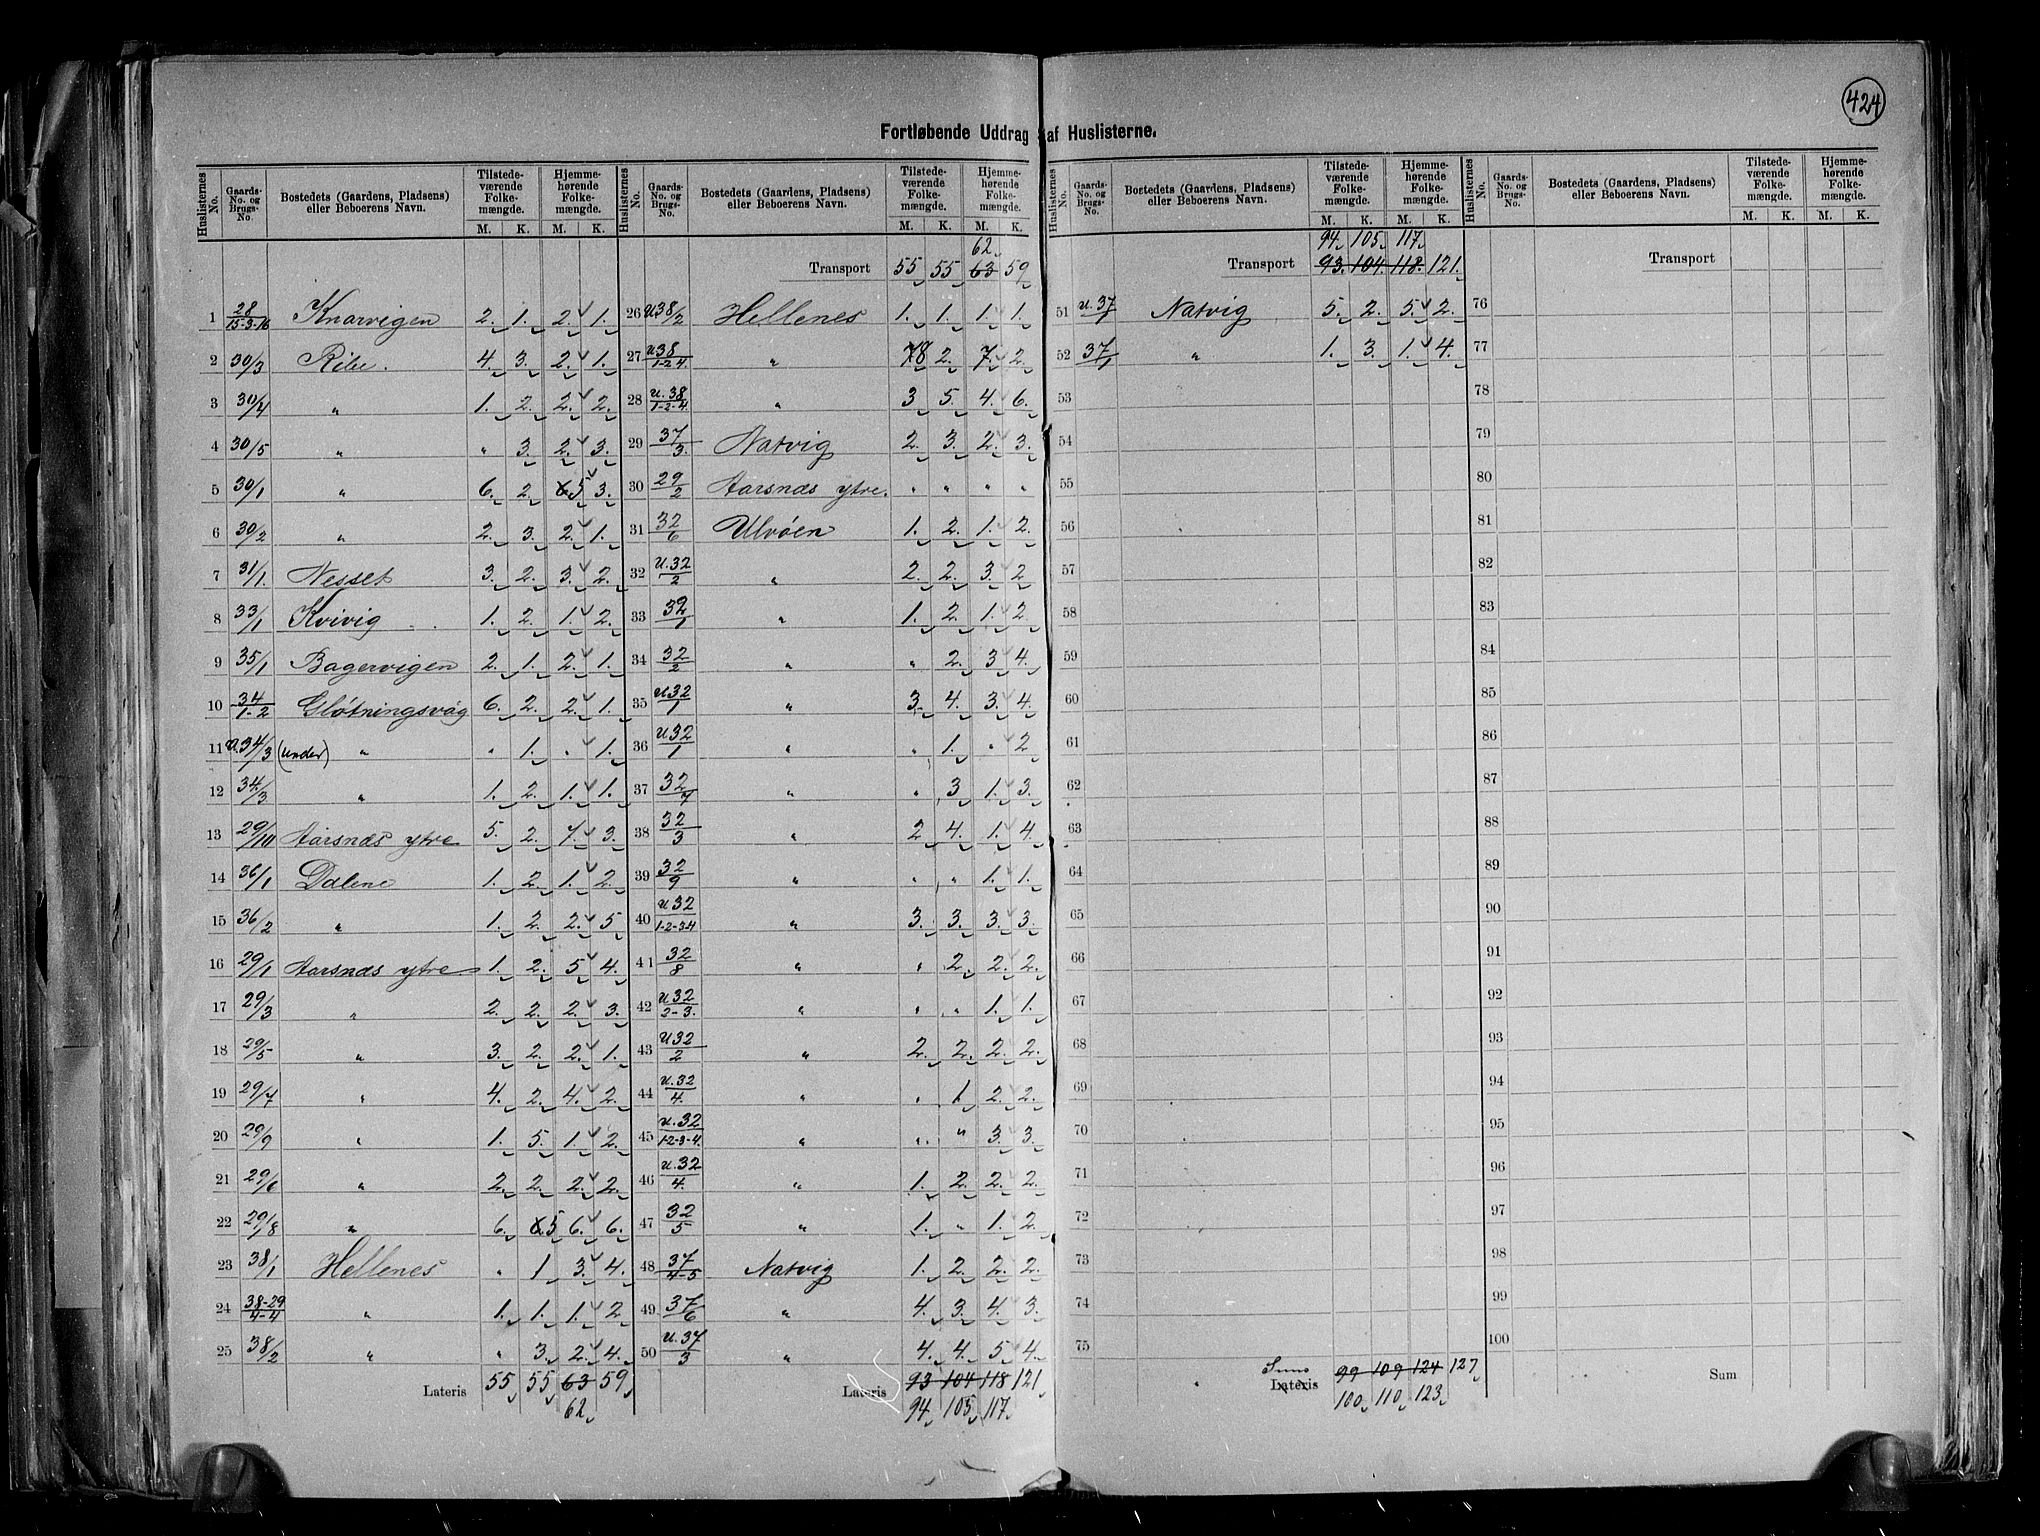 424
Fortløbende Uddrag af Huslisterne.
Huslisternes No. Gaards-No. og Brugs-No. Bostedets (Gaardens, Pladsens) eller Beboerens Navn. Tilstedeværende Folkemængde. M. K. Hjemmehørende Folkemængde. M. K.
1 28/15-3-16 Knarvigen 2. 1. 2. 1.
2 30/3 Ribe. 4. 3. 2. 1.
3 30/4 " 1. 2. 2. 2.
4 30/5 " " 3. 2. 3.
5 30/1 " 6. 2. 6. 5 3.
6 30/2 " 2. 3. 2. 1.
7 31/1. Nesset 3. 2. 3. 2.
8 33/1 Kvivig 1. 2. 1. 2.
9 35/1 Bagervigen 2. 1. 2. 1.
10 34/1-2 Gløtningsvåg 6. 2. 2. 1.
11 U.34/3 (under) " " 1. " 1.
12 34/3 " 1. 2. 1. 1.
13 29/10 Aarsnæs ytre 5. 2. 7. 3.
14 36/1 Dalene 1. 2. 1. 2.
15 36/2 " 1. 2. 2. 5
16 29/1 Aarsnæs ytre 1. 2. 5 4.
17 29/3 " 2. 2. 2. 3.
18 29/5 " 3. 2. 2. 1.
19 29/7 " 4. 2. 4. 2.
20 29/9 " 1. 5. 1. 2.
21 29/6 " 2. 2. 2. 2.
22 29/8 " 6. 6 5 6. 6.
23 38/1 Hellenes " 1 3. 4.
24 38-29/4-4 " 1. 1. 1. 2
25 38/2 " " 3. 2. 4.
Lateris 55 55 63 59
62
62
Transport 55 55 63 59
26 U38/2 Hellenes 1. 1. 1. 1.
27 U38/1-2-4. " 78 2. 7. 2.
28 U.38/1-2-4. " 3 5. 4. 6.
29 37/3. Natvig 2. 3. 2. 3.
30 29/2 Aarsnæs ytre. " " " "
31 32/6 Ulvøen 1. 2. 1. 2.
32 U.32/2 " 2. 2. 3. 2
33 32/1 " 1. 2. 1. 2.
34 32/2 " " 2. 3 4.
35 U.32/1 " 3. 4. 3. 4.
36 U32/1 " " 1. " 2
37 32/7 " " 3 1. 3.
38 32/3 " 2 4. 1. 4.
39 32/9 " " " 1. 1.
40 U32/1-2-3-4 " 3. 3. 3. 3.
41 32/8 " " 2. 2. 2.
42 U.32/2-3. " " " 1. 1.
43 U32/2 " 2. 2. 2. 2.
44 U.32/4. " " 1 2. 2.
45 U.32/1-2-3-4. " " " 3. 3.
46 U.32/4. " 1. 2. 2. 2.
47 32/5 " 1. " 1. 2.
48 37/4-5 Natvig 1. 2. 2. 2.
49 37/6 " 4. 3. 4. 3.
50 U.37/3 " 4. 4. 5 4.
Lateris 93 104 118 121
94 105 117
Huslisternes No. Gaards-No. og Brugs-No. Bostedets (Gaardens, Pladsens) eller Beboerens Navn. Tilstedeværende Folkemængde. M. K. Hjemmehørende Folkemængde. M. K.
94. 105 117
Transport 93. 104. 118. 121.
51 U.37/1 Natvig 5. 2. 5. 2.
52 37/1 " 1. 3. 1. 4.
53
54
55
56
57
58
59
60
61
62
63
64
65
66
67
68
69
70
71
72
73
74
75
Sum
Lateris 99 109 124 127
100 110 123
Transport
76
77
78
79
80
81
82
83
84
85
86
87
88
89
90
91
92
93
94
95
96
97
98
99
100
Sum